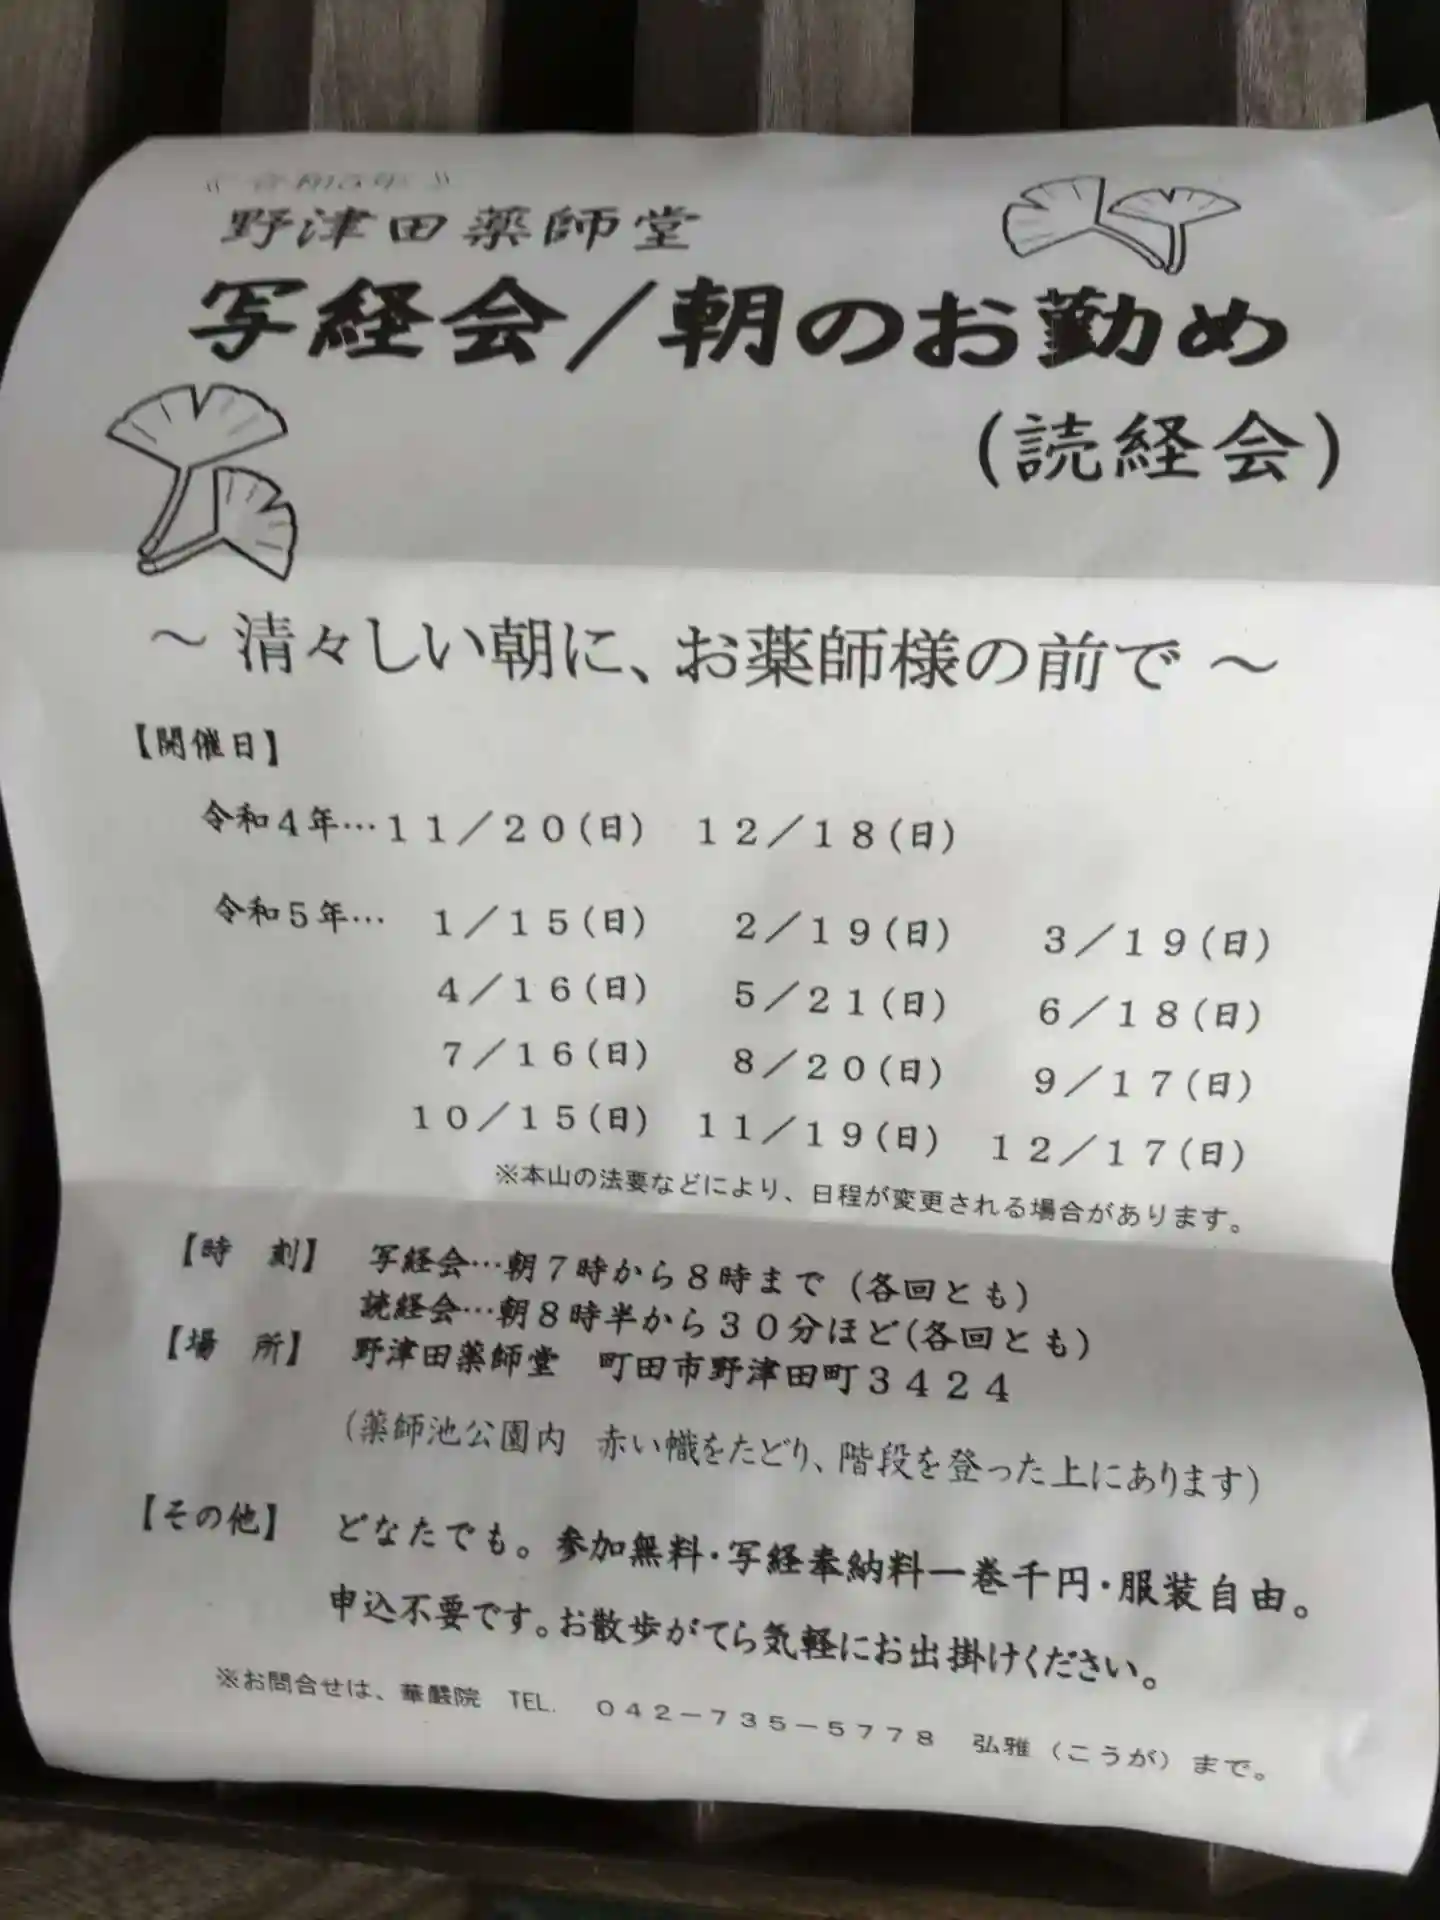 野津田薬師堂
写経会／朝のお勤め
(読経会)
～ 清々しい朝に、お薬師様の前で ～
【開催日】
令和4年…11／20(日) 12／18(日)
令和5年… 1／15(日) 2／19(日) 3／19(日)
4／16(日) 5／21(日) 6／18(日)
7／16(日) 8／20(日) 9／17(日)
10／15(日) 11／19(日) 12／17(日)
※本山の法要などにより、日程が変更される場合があります。
【時　刻】 写経会…朝7時から8時まで (各回とも)
読経会…朝8時半から30分ほど(各回とも)
【場　所】 野津田薬師堂　町田市野津田町3424
(薬師池公園内　赤い幟をたどり、階段を登った上にあります)
【その他】 どなたでも。参加無料・写経奉納料一巻千円・服装自由。
申込不要です。お散歩がてら気軽にお出掛けください。
※お問合せは、華嚴院　TEL.　042－735－5778　弘雅（こうが）まで。